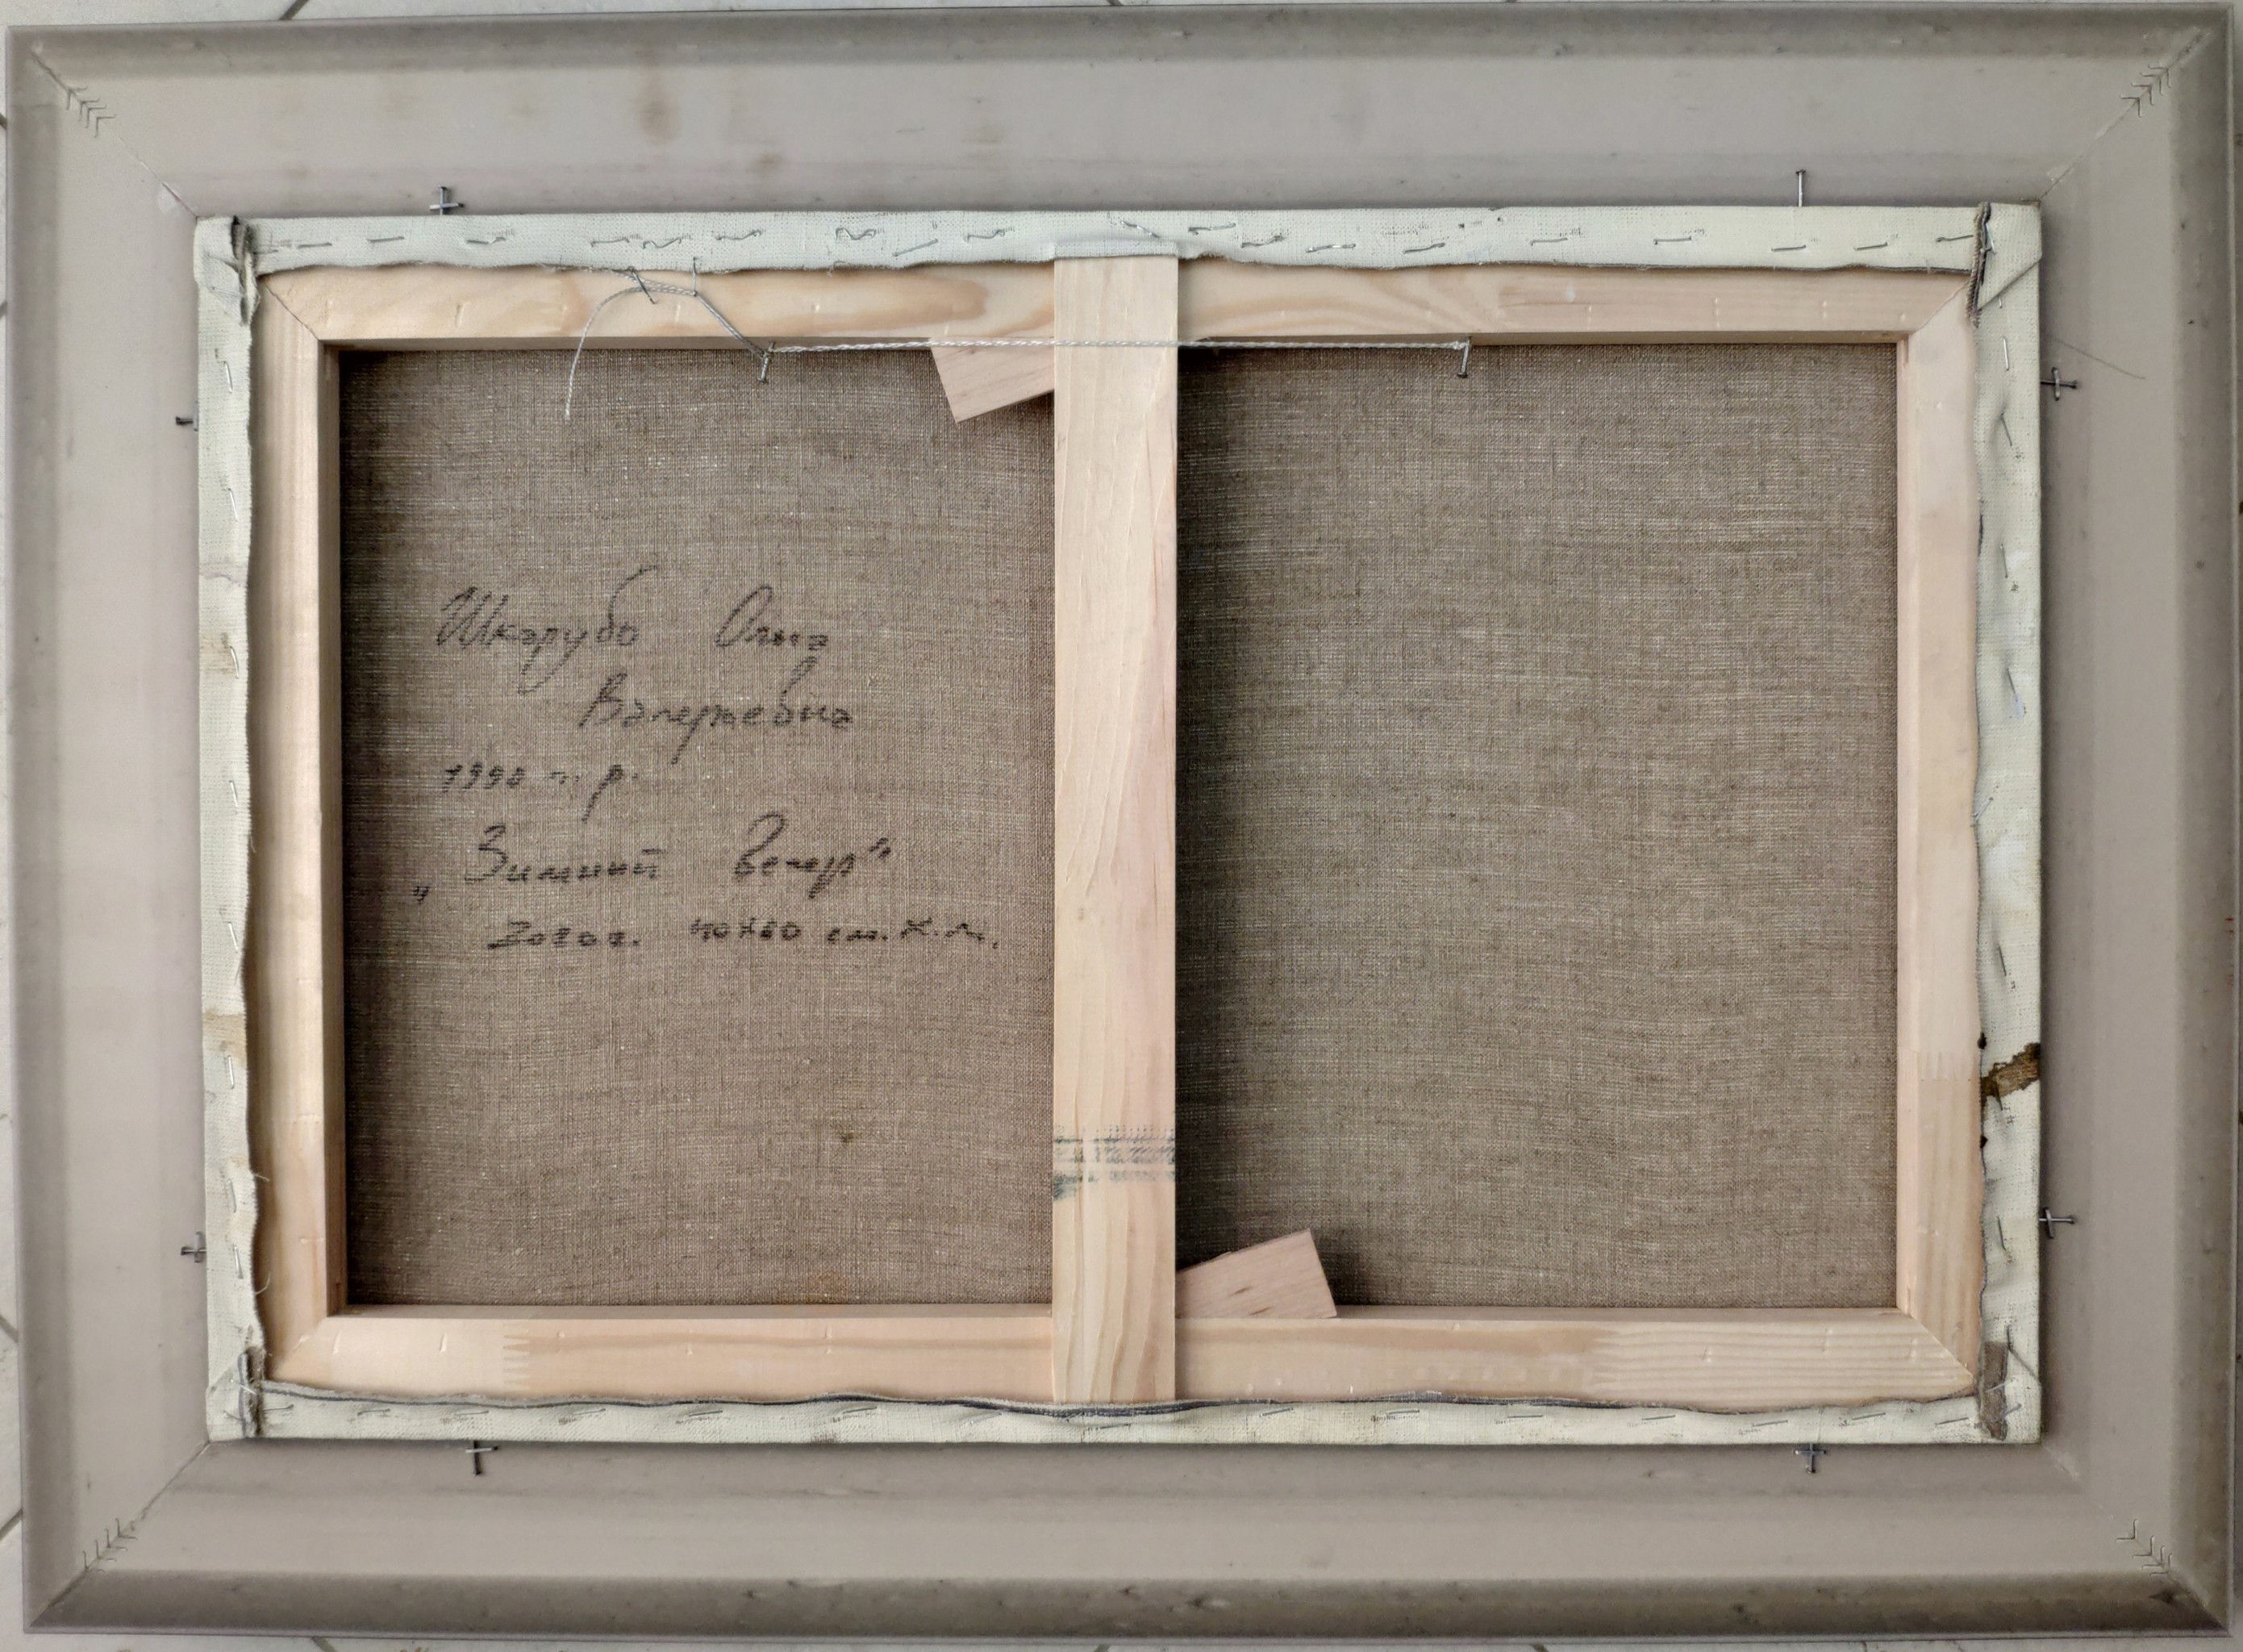 Шкарубо Анна
Валерьевна
1990 г. р.
„Зимний Вечер“
2020г. 40х60 см. х.м.